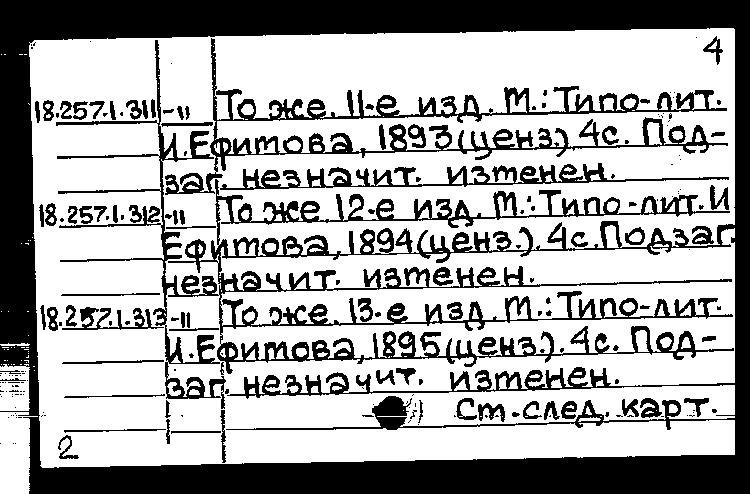 4
18.257.1.311 -"- То же. 11-е изд. М.: Типо-лит.
И. Ефимова, 1893 (ценз.). 4с. Под-
заг. незначит. изменен.
18.257.1.312 -"- То же 12-е изд. М.: Типо-лит. И
Ефимова, 1894 (ценз.). 4с. Подзаг.
незначит. изменен.
18.257.1.313 -"- То же. 13-е изд. М.: Типо-лит.
И. Ефимова, 1895 (ценз.). 4с. Под-
заг. незначит. изменен.
См. след. карт.
2